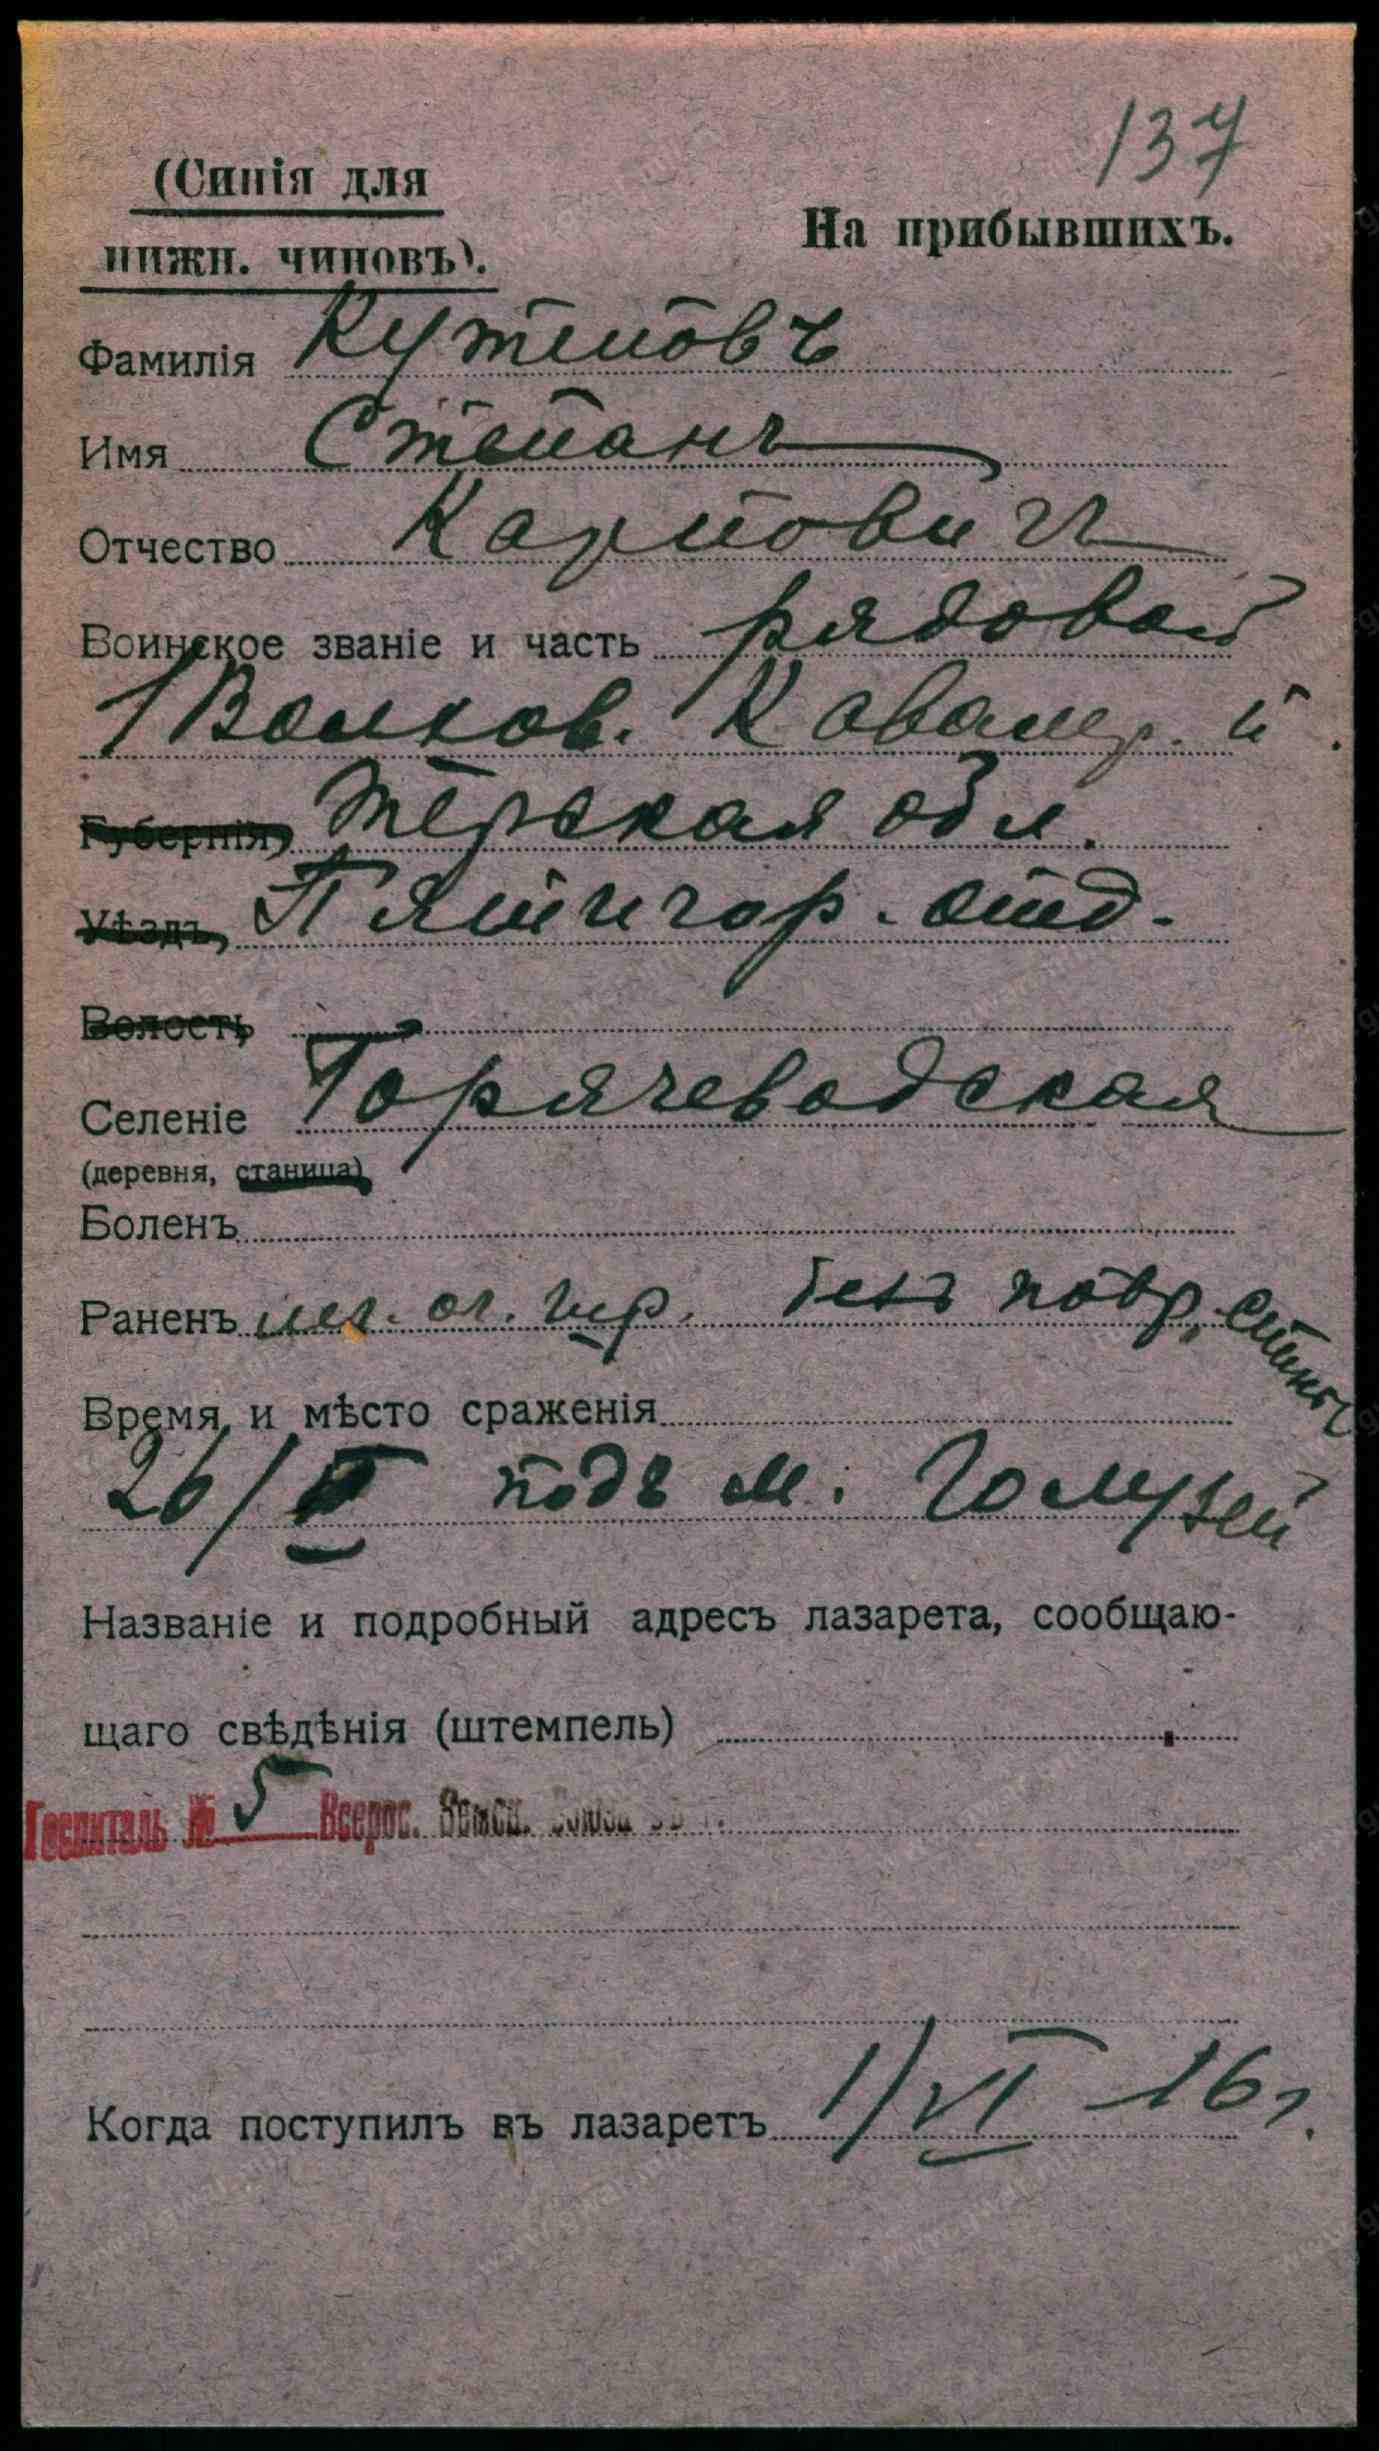 137
(Синія для
нижн. чиновъ).
На прибывшихъ.
Фамилія Кутеповъ
Имя Степанъ
Отчество Карпович
Воинское званіе и часть рядовой
1 Волков. Кавалер. п.
Губернія, Терская обл.
Уѣздъ, Пятигор. отд.
Волость
Селеніе Горячеводская
(деревня, станица)
Боленъ
Раненъ
Время и мѣсто сраженія
26/V подъ м.
Названіе и подробный адресъ лазарета, сообщаю-
щаго свѣдѣнія (штемпель)
Госпиталь № 5 Всерос. Земск. Союза
Когда поступилъ въ лазаретъ 1/VI 16 г.